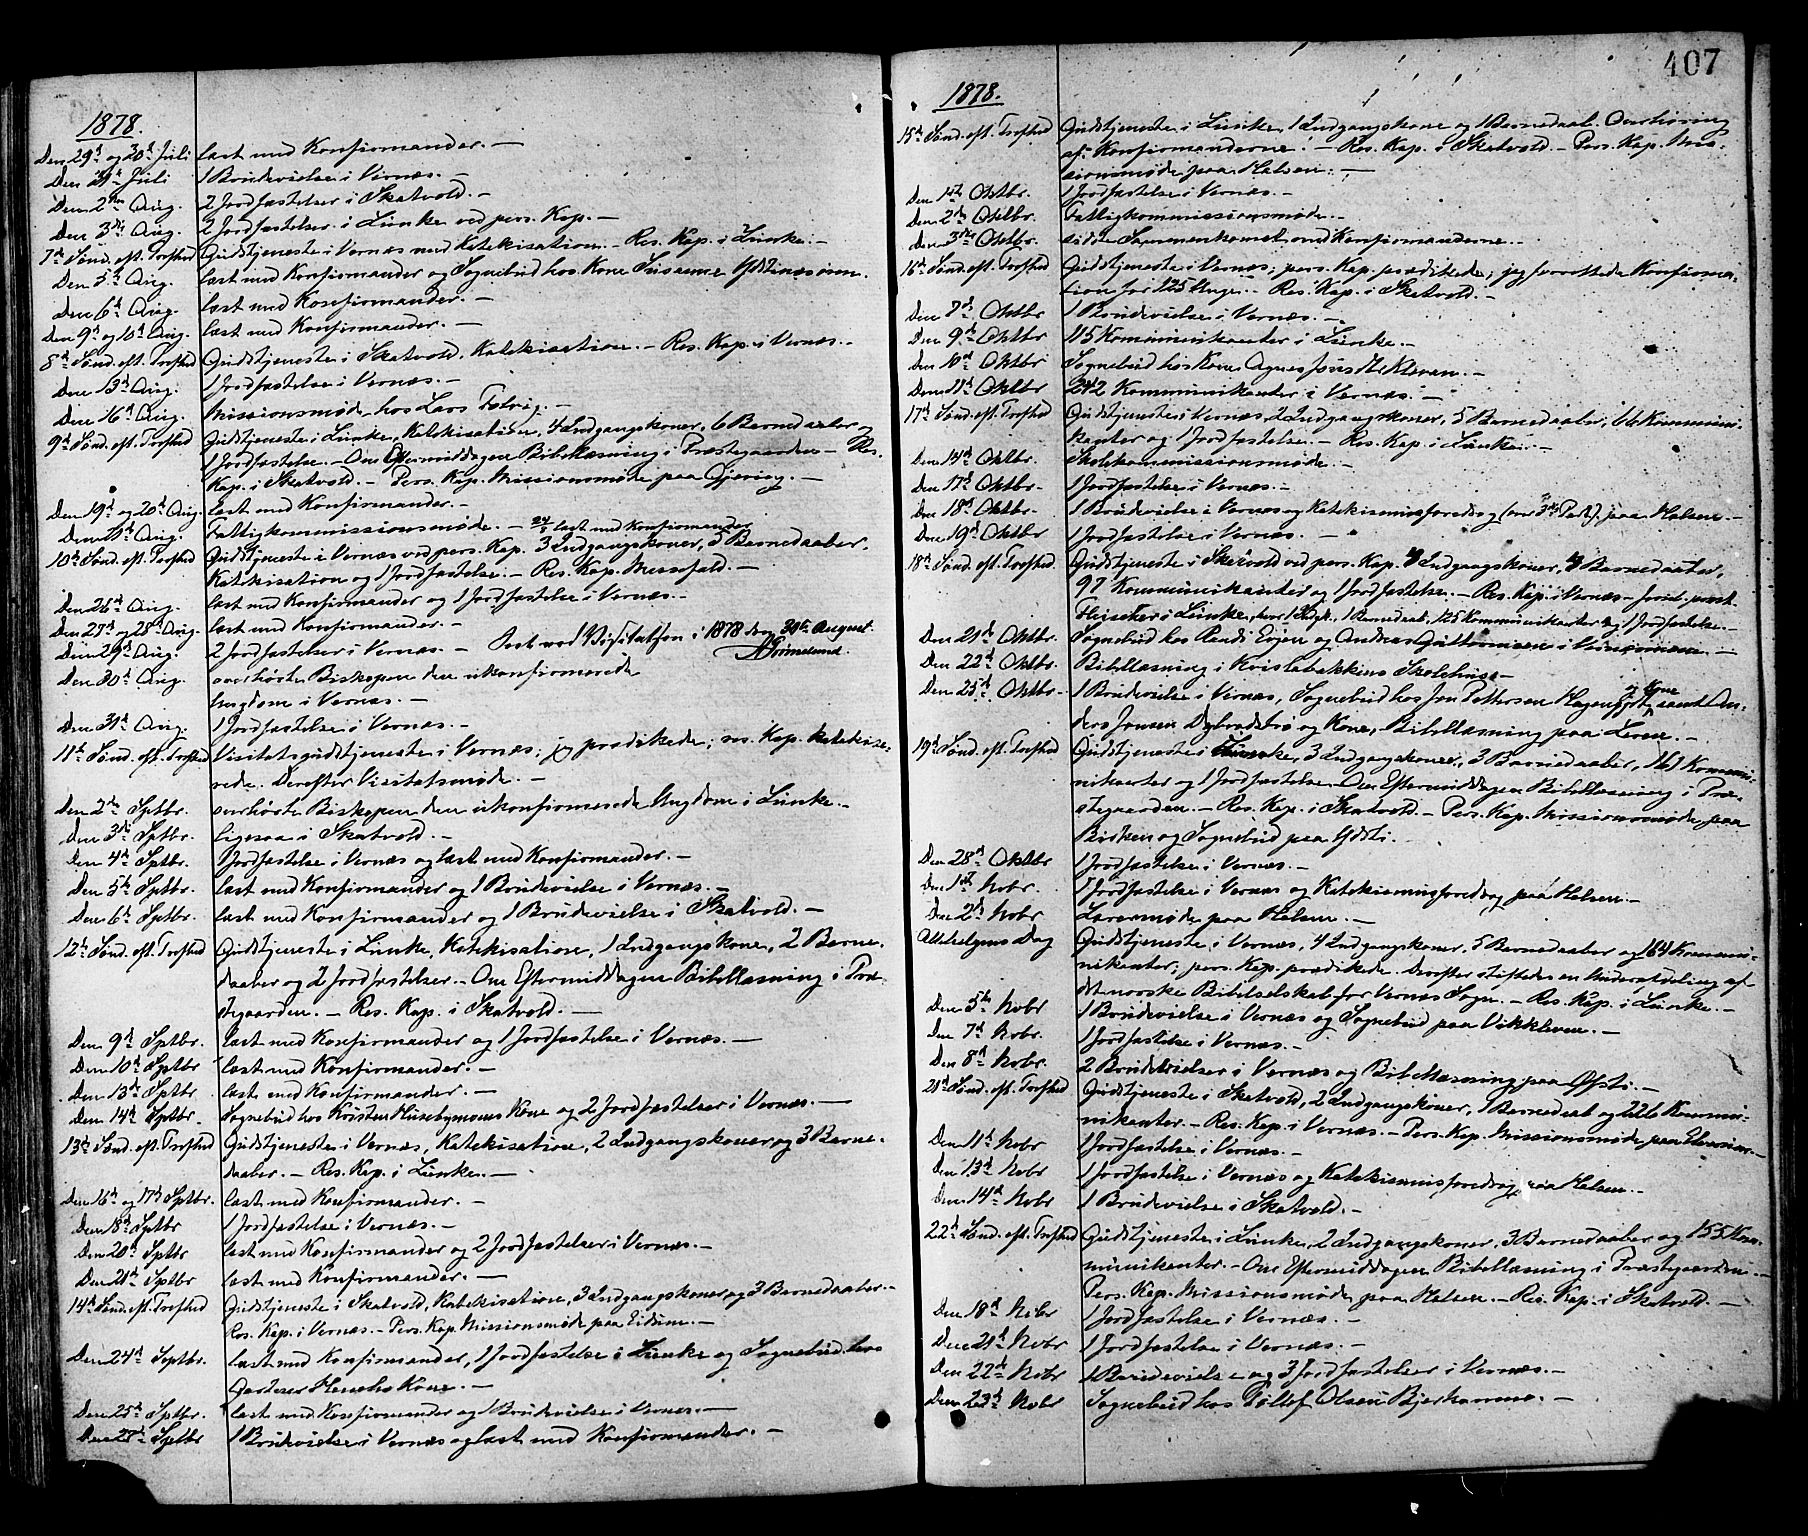 1878.
Den 29de og 30te Juli læst med Konfirmander. —
Den 31te Juli 1 Brudevielse i Vernæs. —
Den 2den Aug. 2 Jordfæstelser i Skatvold. —
Den 3die Aug. 2 Jordfæstelser i Lunke ved pers. Kap. —
7de Sønd. eft. Trefhed Gudstjeneste i Vernæs med Katekisation. — Res. Kap. i Lunke. —
Den 5te Aug. læst med Konfirmander og Sognebud hos Kone Susanne
Den 6te Aug. læst med Konfirmander. —
Den 9de og 10de Aug. læst med Konfirmander. —
8de Sønd. eft. Trefhed Gudstjeneste i Skatvold, Katekisation. — Res. Kap. i Vernæs. —
Den 13de Aug. 1 Jordfæstelse i Vernæs. —
Den 16de Aug. Missionsmøde hos Lars
9de Sønd. eft. Trefhed Gudstjeneste i Lunke, Katekisation, 4 Indgangskoner, 6 Barnedaaber og
1 Jordfæstelse. — Om Eftermiddagen Bibellæsning i Præstegaarden. — Res.
Kap. i Skatvold. — Pers. Kap. Missionsmøde paa Gjeving. —
Den 19de og 20de Aug. læst med Konfirmander. —
Den Aug. Fattigkommissionsmøde. — læst med Konfirmander
10de Sønd. eft. Trefhed Gudstjeneste i Vernæs ved pers. Kap. 3 Indgangskoner, 5 Barnedaaber.
Katekisation og 1 Jordfæstelse. — Res. Kap. Messefald. —
Den 26de Aug. læst med Konfirmander og 1 Jordfæstelse i Vernæs. —
Den 27de og 28de Aug. læst med Konfirmander. —
Den 29de Aug. 2 Jordfæstelser i Vernæs. — Seet ved Visitatsen i 1878 den 30te August.
Den 30te Aug. overhørte Biskopen den ukonfirmerede
Ungdom i Vernæs. —
Den 31te Aug. 1 Jordfæstelse i Vernæs. —
11te Sønd. eft. Trefhed Visitatsgudstjeneste i Vernæs; jeg prædikede; res. Kap. katekise-
rede. Derefter Visitatsmøde. —
Den 2den Sptbr. overhørte Biskopen den ukonfirmerede Ungdom i Lunke. —
Den 3die Sptbr. ligesaa i Skatvold. —
Den 4de Sptbr. 1 Jordfæstelse i Vernæs og læst med Konfirmander. —
Den 5te Sptbr. læst med Konfirmander og 1 Brudevielse i Vernæs. —
Den 6te Sptbr. læst med Konfirmander og 1 Brudevielse i Skatvold. —
12te Sønd. eft. Trefhed Gudstjeneste i Lunke, Katekisation, 1 Indgangskone, 2 Barne-
daaber og 2 Jordfæstelser. — Om Eftermiddagen Bibellæsning i Præ-
stegaarden. — Res. Kap. i Skatvold. —
Den 9de Sptbr. læst med Konfirmander og 1 Jordfæstelse i Vernæs. —
Den 10de Sptbr. læst med Konfirmander. —
Den 13de Sptbr. læst med Konfirmander. —
Den 14de Sptbr. Sognebud hos Kristen Kone og 2 Jordfæstelser i Vernæs. —
13de Sønd. eft. Trefhed Gudstjeneste i Vernæs, Katekisation, 2 Indgangskoner og 3 Barne-
daaber. — Res. Kap. i Lunke. —
Den 16de og 17de Sptbr. læst med Konfirmander. —
Den 18de Sptbr 1 Jordfæstelse i Vernæs. —
Den 20de Sptbr læst med Konfirmander og 2 Jordfæstelser i Vernæs. —
Den 21de Sptbr læst med Konfirmander. —
14de Sønd. eft. Trefhed Gudstjeneste i Skatvold, Katekisation, 3 Indgangskoner og 3 Barnedaaber. —
Res. Kap. i Vernæs. — Pers. Kap. Missionsmøde paa Eidum. —
Den 24de Septbr. læst med Konfirmander, 1 Jordfæstelse i Lunke og Sognebud hos
Kone. —
Den 25de Sptbr. læst med Konfirmander og 1 Brudevielse i Vernæs. —
Den 27de Sptbr 1 Brudevielse i Vernæs og læst med Konfirmander. —
407
1878.
15de Sønd. eft. Trefhed Gudstjeneste i Lunke, 1 Indgangskone og 1 Barnedaab. Overhøring
af Konfirmanderne. — Res. Kap. i Skatvold. — Pers. Kap. Mis-
sionsmøde paa Halsen. —
Den 1ste Oktbr. 1 Jordfæstelse i Vernæs. —
Den 2den Oktbr. Fattigkommissionsmøde. —
Den 3die Oktbr. sidste Sammenkomst med Konfirmanderne. —
16de Sønd. eft. Trefhed Gudstjeneste i Vernæs; pers. Kap. prædikede; jeg forrettede Konfirma-
tion for 125 Unge. — Res. Kap. i Skatvold. —
Den 8de Oktbr 1 Brudevielse i Vernæs. —
Den 9de Oktbr 115 Kommunikanter i Lunke. —
Den 10de Oktbr Sognebud hos Konen Agnes Kleven. —
Den 11te Oktbr 242 Kommunikanter i Vernæs. —
17de Sønd. eft. Trefhed Gudstjeneste i Vernæs, 2 Indgangskoner, 5 Barnedaaber, 66 Kommuni-
kanter og 1 Jordfæstelse. — Res. Kap. i Lunke. —
Den 14de Oktbr. Skolekommissionsmøde. —
Den 17de Oktbr. 1 Jordfæstelse i Vernæs. —
Den 18de Oktbr. 1 Brudevielse i Vernæs og Katekismusforedrag (over 3die Part) paa Halsen. —
Den 19de Oktbr 1 Jordfæstelse i Vernæs. —
18de Sønd. eft. Trefhed Gudstjeneste i Skatvold ved pers. Kap. 4 Indgangskoner, 4 Barnedaaber,
97 Kommunikanter og 1 Jordfæstelse. — Res. Kap. i Vernæs. —
i Lunke, 1 Barnedaab, 125 Kommunikanter og 1 Jordfæstelse. —
Den 21de Oktbr. Sognebud hos og Andreas i
Den 22de Oktbr. Bibellæsning i Kvislabakkens Skolehus. —
Den 25de Oktbr. 1 Brudevielse i Vernæs, Sognebud hos Jon Pettersen og Kone samt An-
ders Jonsen og Kone, Bibellæsning paa
19de Sønd. eft. Trefhed Gudstjeneste i Lunke, 3 Indgangskoner, 3 Barnedaaber, 161 Kommu-
nikanter og 1 Jordfæstelse. Om Eftermiddagen Bibellæsning i Præ-
stegaarden. — Res. Kap. i Skatvold. — Pers. Kap. Missionsmøde paa
Birken og Sognebud paa
Den 28de Oktbr 1 Jordfæstelse i Vernæs. —
Den 1ste Nobr. 1 Jordfæstelse i Vernæs og Katekismusforedrag paa Halsen. —
Den 2den Nobr Læremøde paa Halsen. —
Allehelgens Dag Gudstjeneste i Vernæs, 4 Indgangskoner, 5 Barnedaaber og 164 Kommu-
nikanter; pers. Kap. prædikede. Derefter stiftedes en Underafdeling af
det norske Bibelselskab for Vernæs Sogn. — Res. Kap. i Lunke. —
Den 5te Nobr 1 Brudevielse i Vernæs og Sognebud paa Vikkleven. —
Den 7de Nobr. 1 Jordfæstelse i Vernæs. —
Den 8de Nobr. 2 Brudevielser i Vernæs og Bibellæsning paa
21de Sønd. eft. Trefhed Gudstjeneste i Skatvold, 2 Indgangskoner, 1 Barnedaab og 226 Kommu-
nikanter. — Res. Kap. i Vernæs. — Pers. Kap. Missionsmøde paa
Den 11te Nobr 1 Jordfæstelse i Vernæs. —
Den 13de Nobr 1 Jordfæstelse i Vernæs og Katekismusforedrag paa Halsen. —
Den 14de Nobr 1 Brudevielse i Skatvold. —
22de Sønd. eft. Trefhed Gudstjeneste i Lunke, 2 Indgangskoner, 3 Barnedaaber og 155 Kom-
munikanter. — Om Eftermiddagen Bibellæsning i Præstegaarden. —
Pers. Kap. Missionsmøde paa Halsen. — Res. Kap. i Skatvold. —
Den 18de Nobr 1 Jordfæstelse i Vernæs. —
Den 21de Nobr 1 Jordfæstelse i Vernæs. —
Den 22de Nobr 1 Brudevielse og 3 Jordfæstelser i Vernæs. —
Den 23de Nobr Sognebud hos Tollef Olsen